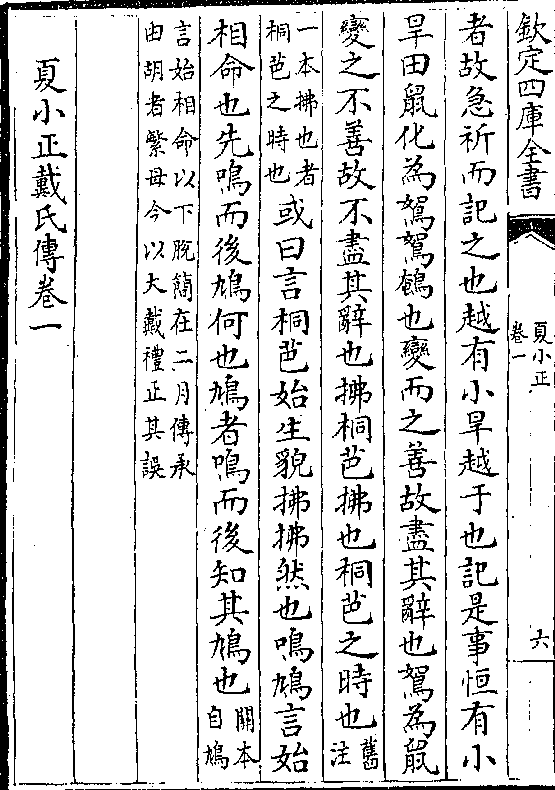 欽定四庫全書
夏小正
卷一
六
者故急祈而記之也越有小旱越于也記是事恒有小
旱田鼠化為鴽鴽鵪也變而之善故盡其辭也鴽為鼠
變之不善故不盡其辭也拂桐芭拂也桐芭之時也舊注
一本拂也者桐芭之時也或曰言桐芭始生貌拂拂然也鳴鳩言始
相命也先鳴而後鳩何也鳩者鳴而後知其鳩也關本自鳩
言始相命以下脱簡在二月傳承
由胡者繁母今以大戴禮正其誤
夏小正戴氏傳卷一